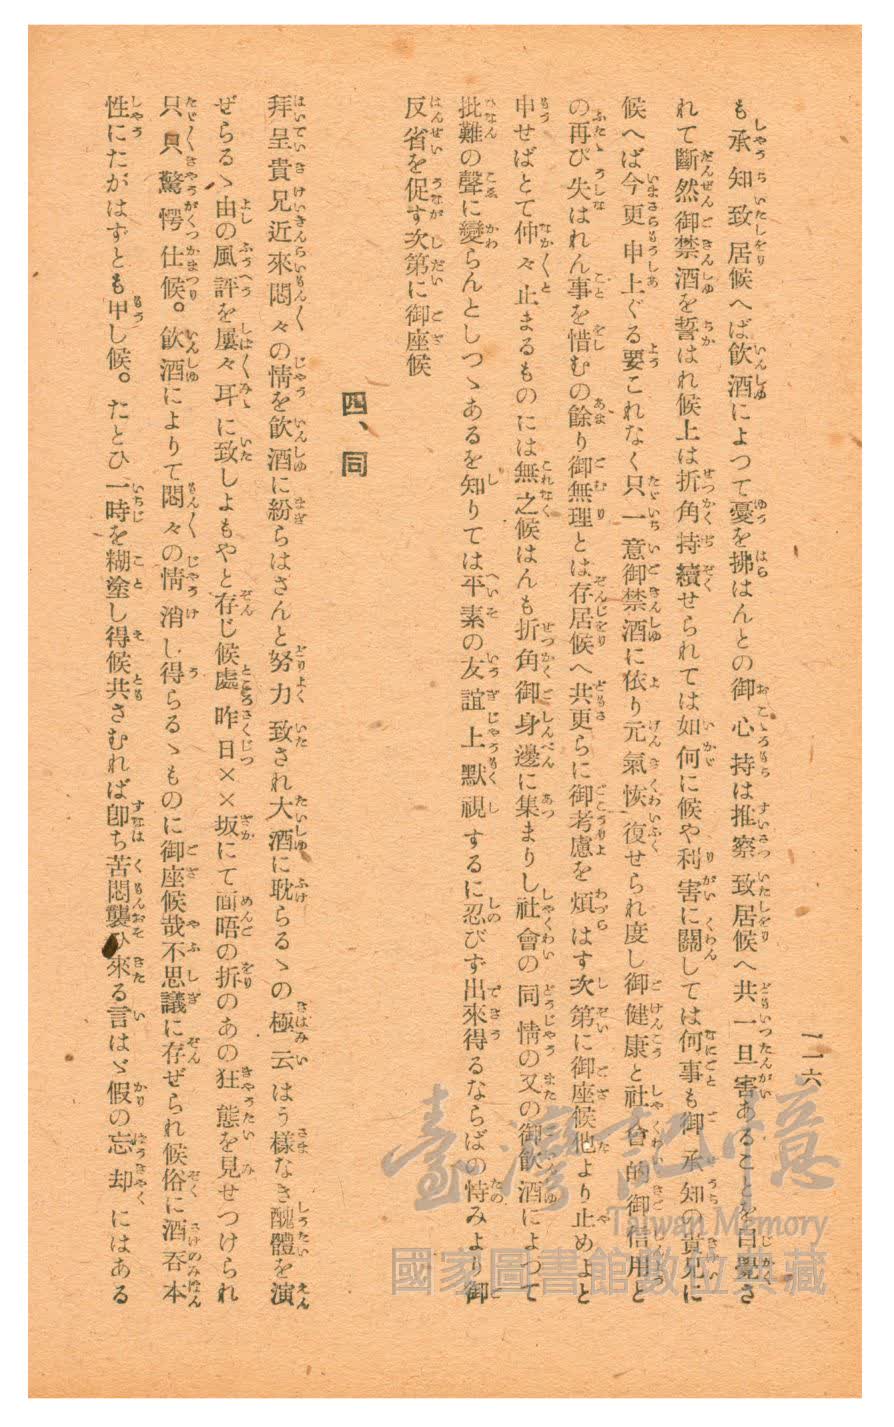 一一六
も承知致居候へば飲酒によつて憂を拂はんとの御心持は推察致居候へ共一旦害あることを自覺さ
れて斷然御禁酒を誓はれ候上は折角持續せられては如何に候や利害に關しては何事も御承知の貴兄に
候へば今更申上ぐる要これなく只一意御禁酒に依り元氣恢復せられ度し御健康と社會的御信用と
の再び失はれん事を惜むの餘り御無理とは存居候へ共更らに御考慮を煩はす次第に御座候他より止めよと
申せばとて仲々止まるものには無之候はんも折角御身邊に集まりし社會の同情の又の御飲酒によつて
批難の聲に變らんとしつゝあるを知りては平素の友誼上默視するに忍びず出來得るならばの恃みより御
反省を促す次第に御座候
四、同
拜呈貴兄近來悶々の情を飲酒に紛らはさんと努力致され大酒に耽らるゝの極云はう樣なき醜體を演
ぜらるゝ由の風評を屢々耳に致しよもやと存じ候處昨日××坂にて面晤の折のあの狂態を見せつけられ
只只驚愕仕候。飲酒によりて悶々の情消し得らるゝものに御座候哉不思議に存ぜられ候俗に酒呑本
性にたがはずとも申し候。たとひ一時を糊塗し得候共さむれば卽ち苦悶襲ひ來る言はゞ假の忘却にはある
臺灣記憶
Taiwan Memory
國家圖書館數位典藏